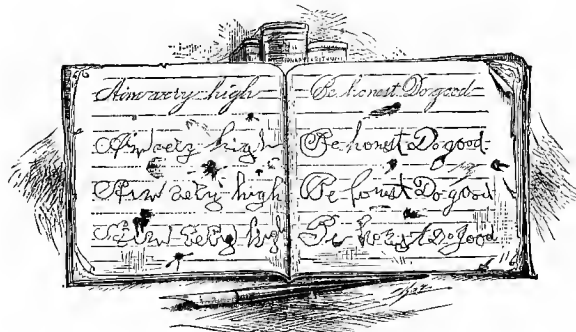 Aim very high
Aim very high
Aim very high
Aim very hig
Be honest. Do good
Be honest. Do good.
Be honst Do good
Be Do good